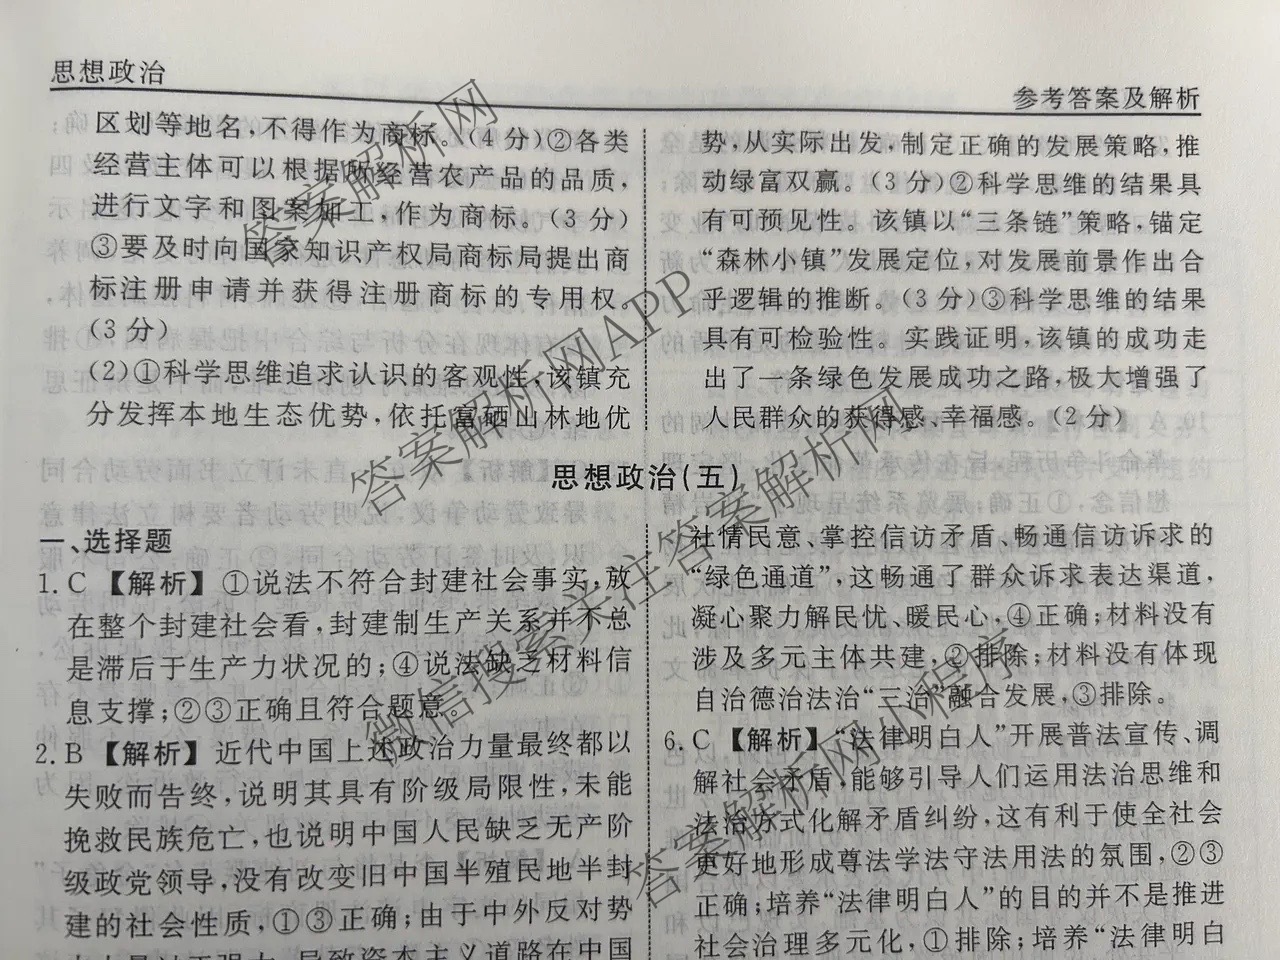 思想政治
参考答案及解析
区划等地名,不得作为商标。(4分)②各类
经营主体可以根据所经营农产品的品质,
进行文字和图案加工,作为商标。(3分)
③要及时向国家知识产权局商标局提出商
标注册申请并获得注册商标的专用权。
(3分)
(2)①科学思维追求认识的客观性,该镇充
分发挥本地生态优势,依托富硒山林地优
势,从实际出发,制定正确的发展策略,推
动绿富双赢。(3分)②科学思维的结果具
有可预见性。该镇以“三条链”策略,锚定
“森林小镇”发展定位,对发展前景作出合
乎逻辑的推断。(3分)③科学思维的结果
具有可检验性。实践证明,该镇的成功走
出了一条绿色发展成功之路,极大增强了
人民群众的获得感、幸福感。(2分)
思想政治(五)
一、选择题
1.C【解析】①说法不符合封建社会事实,放
在整个封建社会看,封建制生产关系并不总
是滞后于生产力状况的;④说法缺乏材料信
息支撑;②③正确且符合题意。
2.B【解析】近代中国上述政治力量最终都以
失败而告终,说明其具有阶级局限性,未能
挽救民族危亡,也说明中国人民缺乏无产阶
级政党领导,没有改变旧中国半殖民地半封
建的社会性质,①③正确;由于中外反对势
力力量过于强大,导致资本主义道路在中国
社情民意、掌控信访矛盾、畅通信访诉求的
“绿色通道”,这畅通了群众诉求表达渠道,
凝心聚力解民忧、暖民心,④正确;材料没有
涉及多元主体共建,②排除;材料没有体现
自治德治法治“三治”融合发展,③排除。
6.C【解析】“法律明白人”开展普法宣传、调
解社会矛盾,能够引导人们运用法治思维和
法治方式化解矛盾纠纷,这有利于使全社会
更好地形成尊法学法守法用法的氛围,②③
正确;培养“法律明白人”的目的并不是推进
社会治理多元化,①排除;培养“法律明白
答案解析网
答案解析网APP
微信搜索关注答案解析网
答案解析网小程序